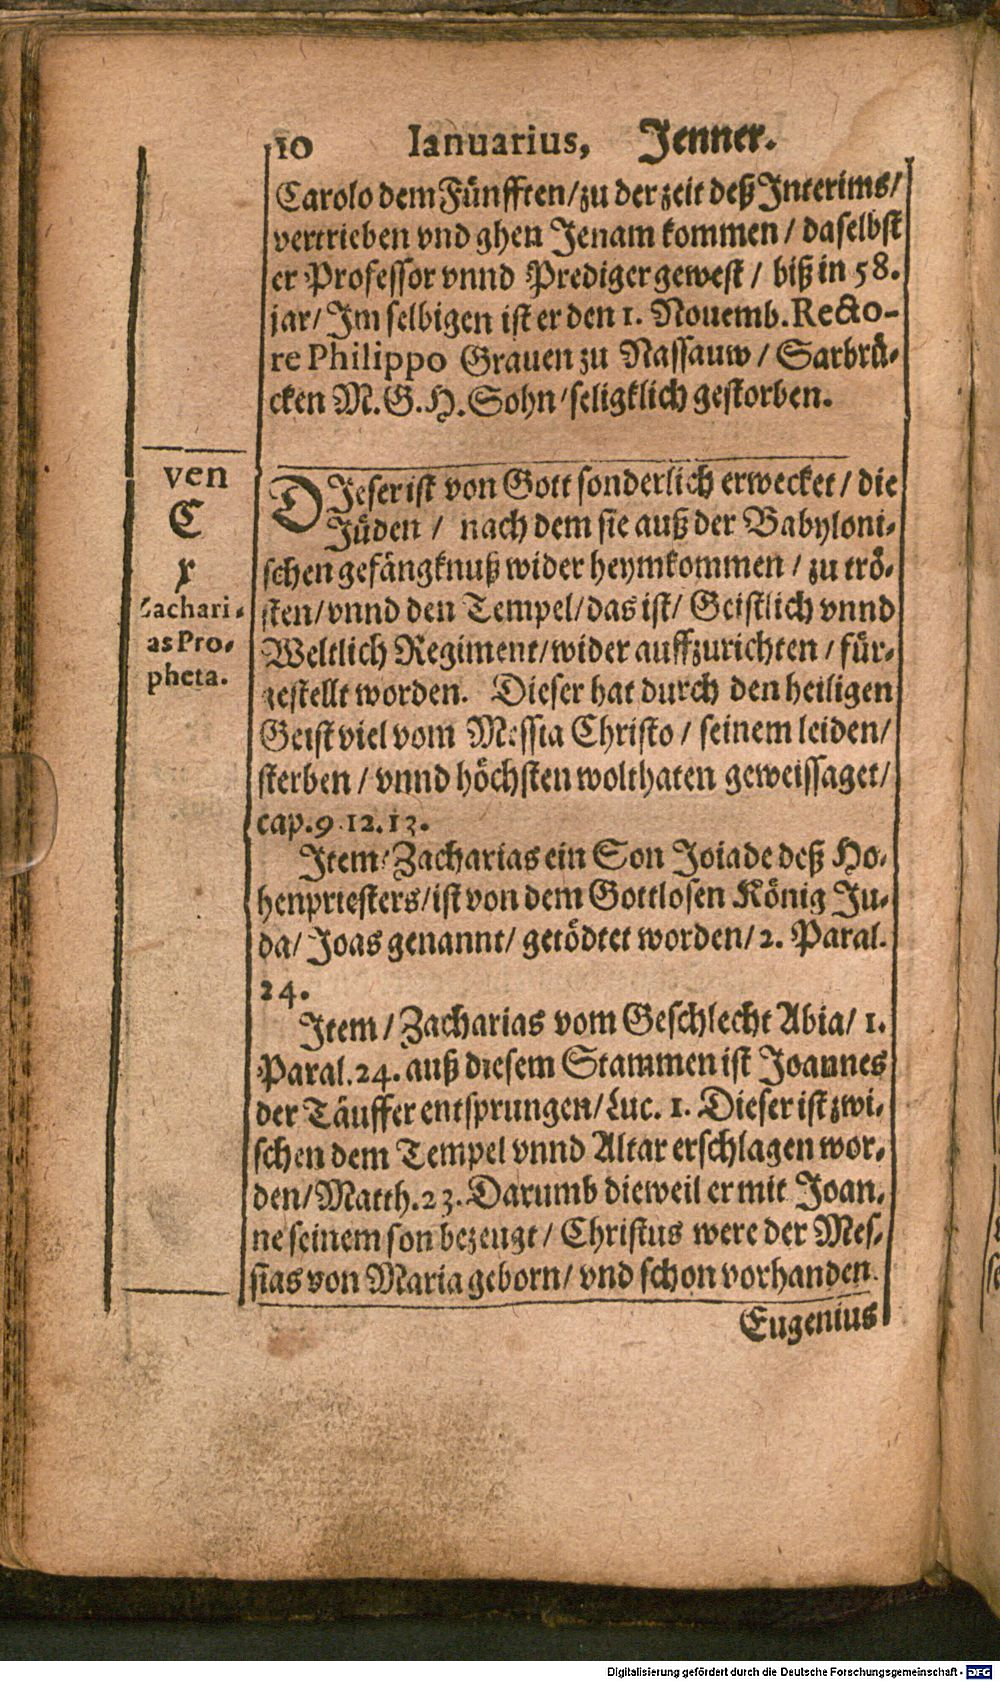 10 Ianuarius, Jenner.
Carolo dem Fünfften/zu der zeit deß Interims/
vertrieben vnd ghen Jenam kommen / daselbst
er Professor vnnd Prediger gewest / biß in 58.
jar/ Im selbigen ist er den 1. Nouemb. Recto-
re Philippo Grauen zu Nassauw / Sarbrü-
cken M.G.H. Sohn/seligklich gestorben.
ven
C
x
Zachari-
as Pro-
pheta.
DIeser ist von Gott sonderlich erwecket / die
Jüden / nach dem sie auß der Babyloni-
schen gefängknuß wider heymkommen / zu trö-
sten/vnnd den Tempel/das ist/ Geistlich vnnd
Weltlich Regiment/wider auffzurichten / für-
gestellt worden. Dieser hat durch den heiligen
Geist viel vom Messia Christo / seinem leiden/
sterben / vnnd höchsten wolthaten geweissaget/
cap.9.12.13.
Item/Zacharias ein Son Joiade deß Ho-
henpriesters/ist von dem Gottlosen König Ju-
da/ Joas genannt/ getödtet worden/2. Paral.
24.
Item / Zacharias vom Geschlecht Abia/ 1.
Paral.24. auß diesem Stammen ist Joannes
der Täuffer entsprungen/Luc. 1. Dieser ist zwi-
schen dem Tempel vnnd Altar erschlagen wor-
den/Matth.23. Darumb dieweil er mit Joan-
ne seinem son bezeugt / Christus were der Mes-
sias von Maria geborn/ vnd schon vorhanden.
Eugenius
Digitalisierung gefördert durch die Deutsche Forschungsgemeinschaft - DFG